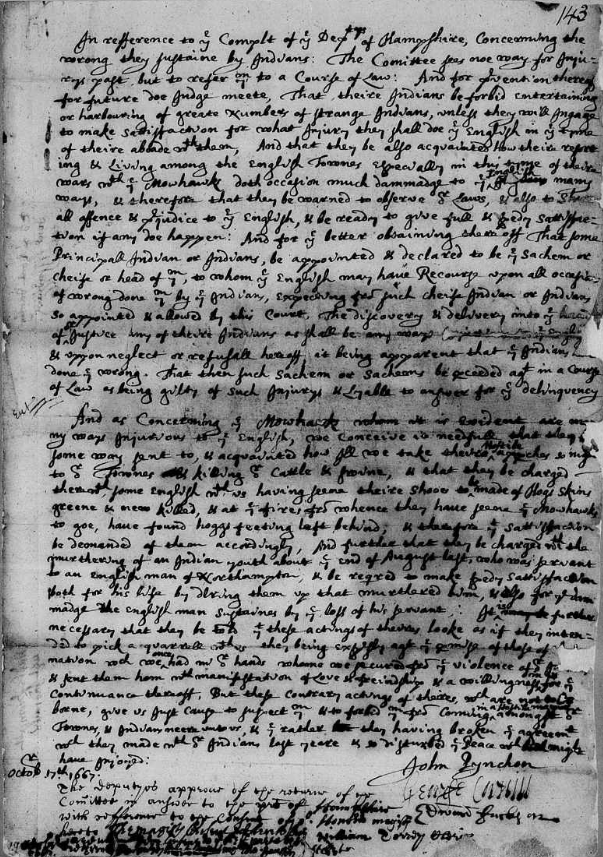 143
In refference to yͤ Complt of yͤ Deptys of Hampshire, Concerning the
wrong they sustaine by Indians: The Comittee sees not way for Inju-
rys past but to refer ym to a Course of Law: And for pvention thereof
for future doe Judge meete, That theire Indians be forbid entertaining
or harbouring of greate Numbers of strange Indians, unless they will Ingage
to make Satisfaction for what Injury they shall doe yͤ English in yͤ tyme
of theire abode wth them, And that they be also acquainted How theire resort
ing & Living among the English Townes Especially in this tyme of theire
wars wth yͤ Mowhawk doth occasion much dammadge to yͤ English many
ways, & therefore that they be warned to observe oͬ Laws, & also to Shun
all offence & prjudice to yͤ English, & be ready to give full & speedy Sattisfac-
tion if any doe happen: And for yͤ better obtaining thereoff That some
Principall Indian or Indians, be appointed & declared to be yͤ Sachem or
cheife or head of ym, to whom yͤ English may have Recourse upon all occasi
of wrong done ym by yͤ Indians, Expecting from such cheife Indian or Indians
so appointed & allowed by this Court, The discovery & delivery into yͤ hands
of Justice Any of theire Indians as shall be any way
& upon neglect or refusall hereoff, it being apparent that yͤ Indians
done yͤ wrong. That then such Sachem or Sachems be pceeded agt in a Course
of Law as being gilty of such Injurys & Lyable to answer for yͤ delinquency
And as Concerning yͤ Mowhawk whom it is Evident are m
ny ways Injurious to yͤ English, we Conceive it needfull that they
some way sent to, & acquainted how Ill we take theire
to oͬ Townes & killing oͬ Cattle & swine, & that they be charged
therewth some English wth us having seene theire Shoes to be made of Hogs skins
greene & new killed, & at yͤ fires from whence they have seene yͤ Mowhawks
to goe, have found hoggs feeting left behind; & therefore yͤ Sattisfaction
be demanded of them accordingly, And further that they be charged wth the
murthering of an Indian youth about yͤ End of August last, who was servant
to an English man of Northampton, & be reqred to make speedy Sattisfaction
both for his life by dlring them up that murthered him, & also for yͤ dam
madge the English man Sustaines by yͤ loss of his servant: further
necessary that they be told yͤ these actings of theires looke as if they inten-
ded to pick a quarrell wth us they being Expressly agt yͤ pmise of those of
nation wch we once had in oͬ hands whome we secured from yͤ violence of
& sent them hom wth manifestation of Love & freindship & a willingness for yͤ
Continuance thereoff, But these Contrary actings of theires, wch are not to be
borne, give us Just Cause to suspect ym & to forbid ym from Coming amongst oͬ
Townes, & Indians neere unto us, & yͤ rather they having broken yͤ agreemt
wch they made wth oͬ Indians last yeare & so disturbed yͤ peace wch might
have Injoyed:
John Pynchon
Octobͬ 17th 1667:
The deputyes approve of the returne of yͤ
Comittee in answer to the
with refference to the Consent of oͬ Honord magists
hereto
William Torrey Cleric